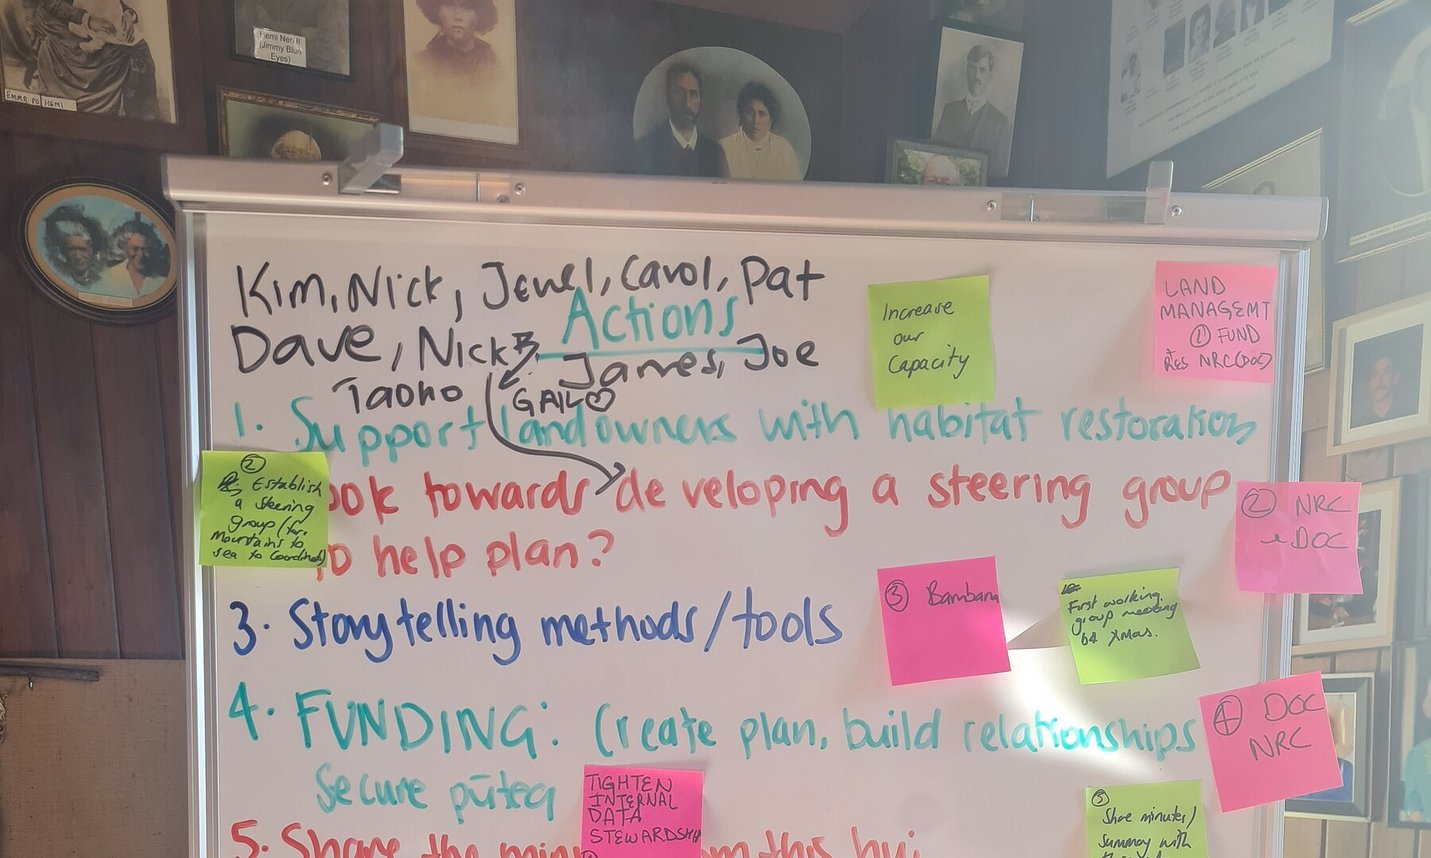 Hemi Neri II
(Jimmy Blue
Eyes)
Kim, Nick, Jewel, Carol, Pat
Actions
Dave, Nick B, James, Joe
Taoho GAIL
Increase
our
Capacity
LAND
MANAGEMT
① FUND
NRC(DOC)
1. Support landowners with habitat restoration
② Establish
a steering
group (for
Mountains to
sea to Coordinate)
ook towards developing a steering group
to help plan?
② NRC
DOC
3. Storytelling methods/tools
③
First working
group meeting
b4 Xmas.
4. FUNDING: Create plan, build relationships
Secure pūtea
④ DOC
NRC
TIGHTEN
INTERNAL
DATA
STEWARDSHIP
⑤
Share minutes/
summary with
5. Share the min om this hui